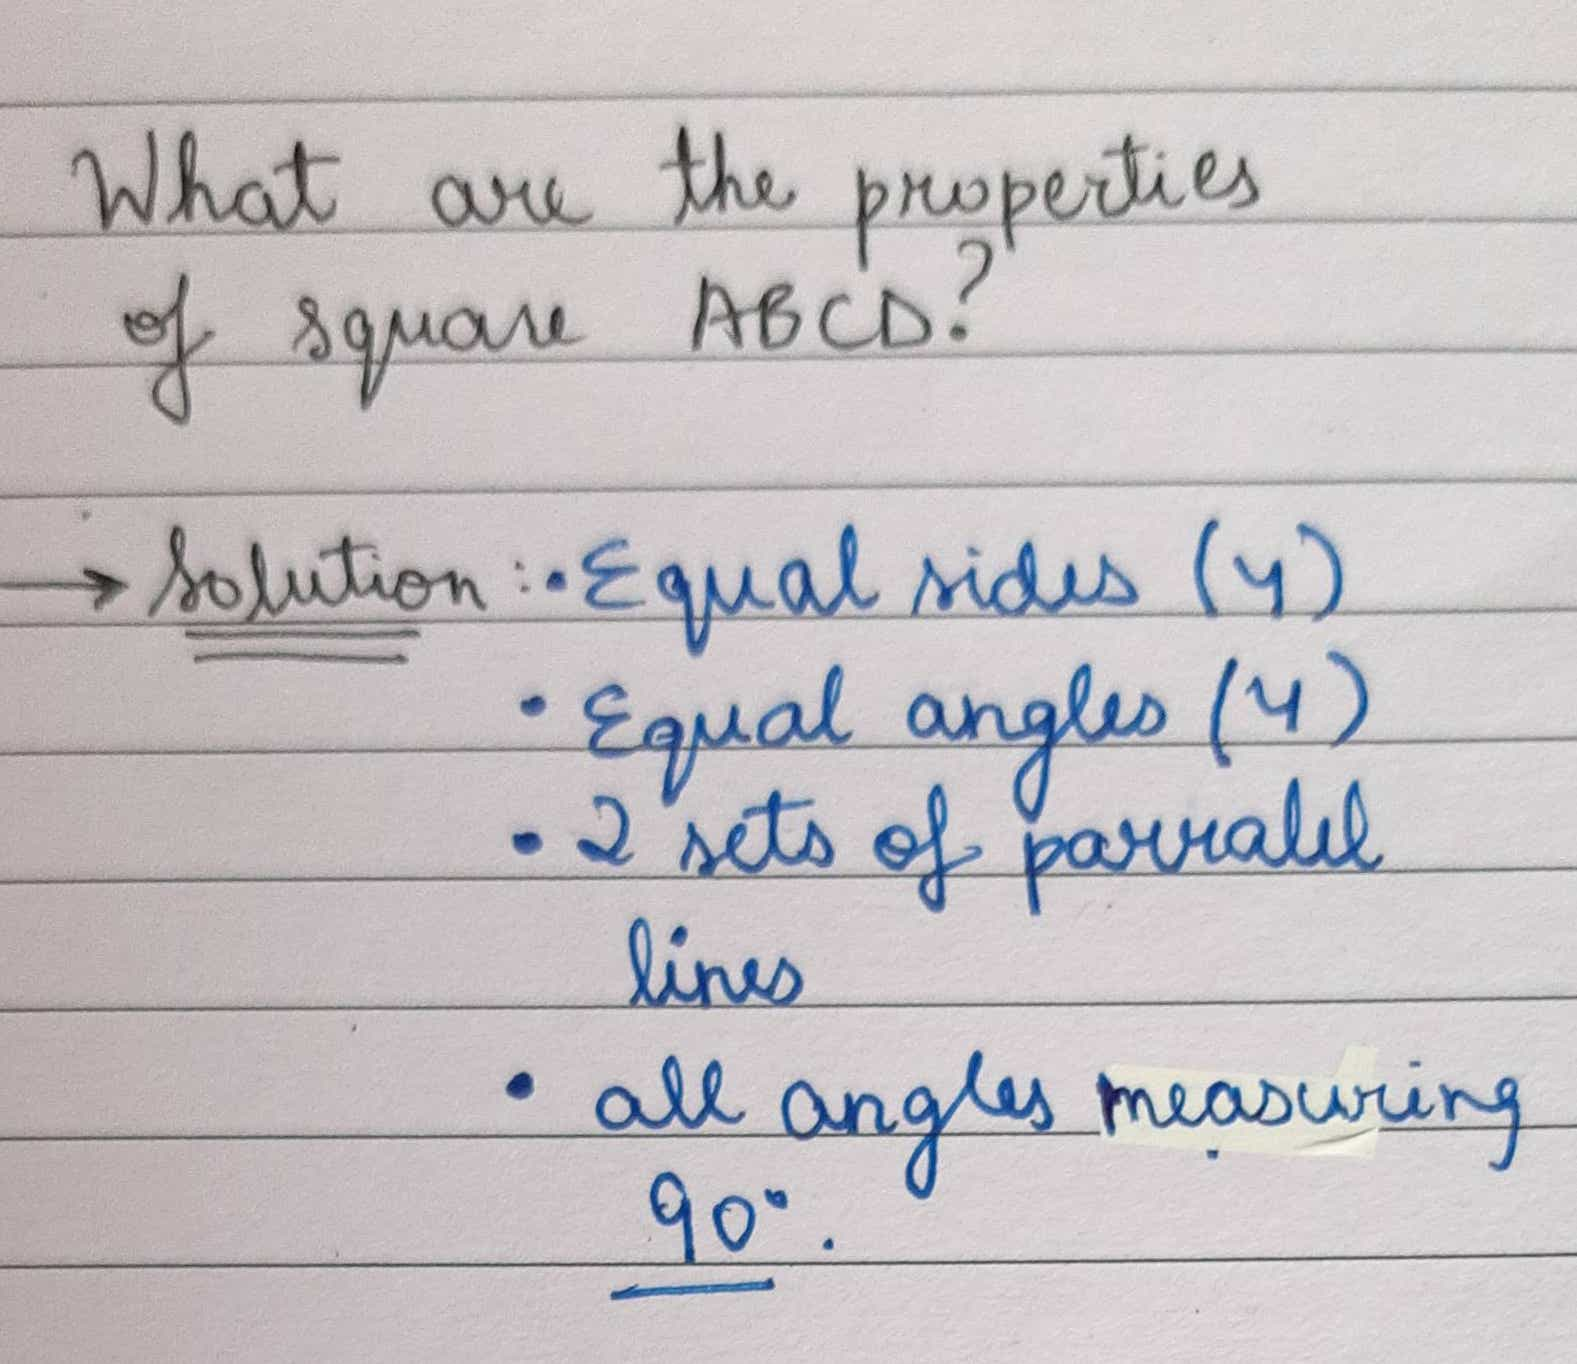 What are the properties
of square ABCD?
→ Solution :• Equal sides (4)
• Equal angles (4)
• 2 sets of parralel
lines
• all angles measuring
90°.